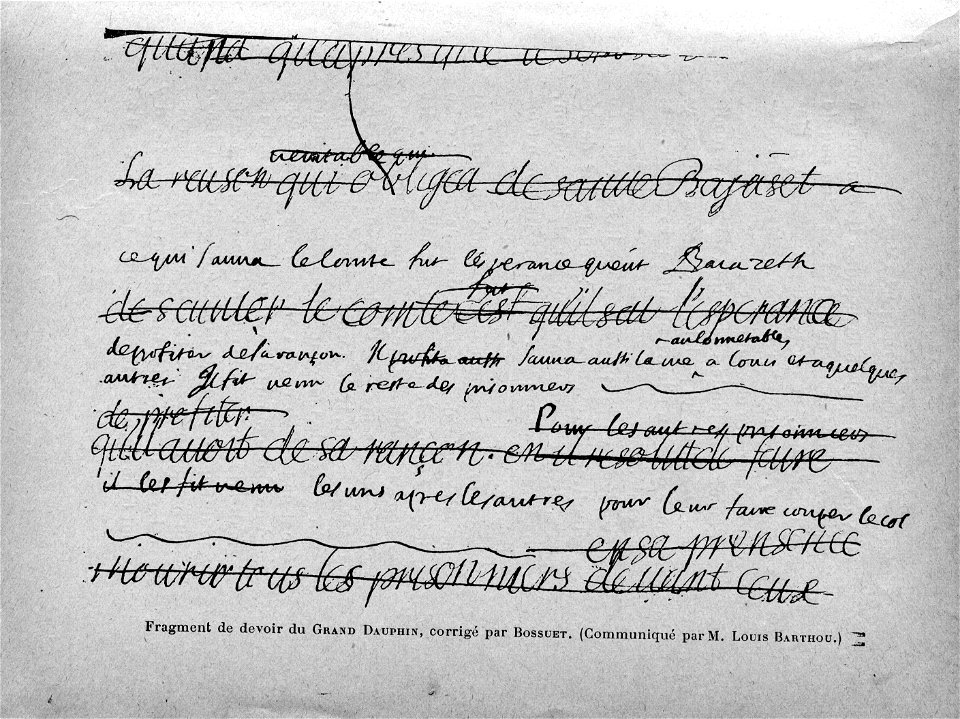 quand qu'apres que
veritable qui
La reuson qui obligea de sauue Bajaset a
ce qui sauua le Comte fut l'esperance qu'eut Bazazeth
fut
de sauuer le comte c'est qu'il sau l'esperance
au connetable,
de profiter de sa rançon. Il profita aussi sauua aussi la vie a Couci et a quelques
autres Il fit venir le reste des prisonniers
de profiter
Pour les autres prisonniers
qu'il auoit de sa rançon. en il resolut de faire
il les fit venir les uns apres les autres pour leur faire couper le col
en sa presence
mourir tous les prisonniers deuant ceux
Fragment de devoir du GRAND DAUPHIN, corrigé par BOSSUET. (Communiqué par M. LOUIS BARTHOU.)